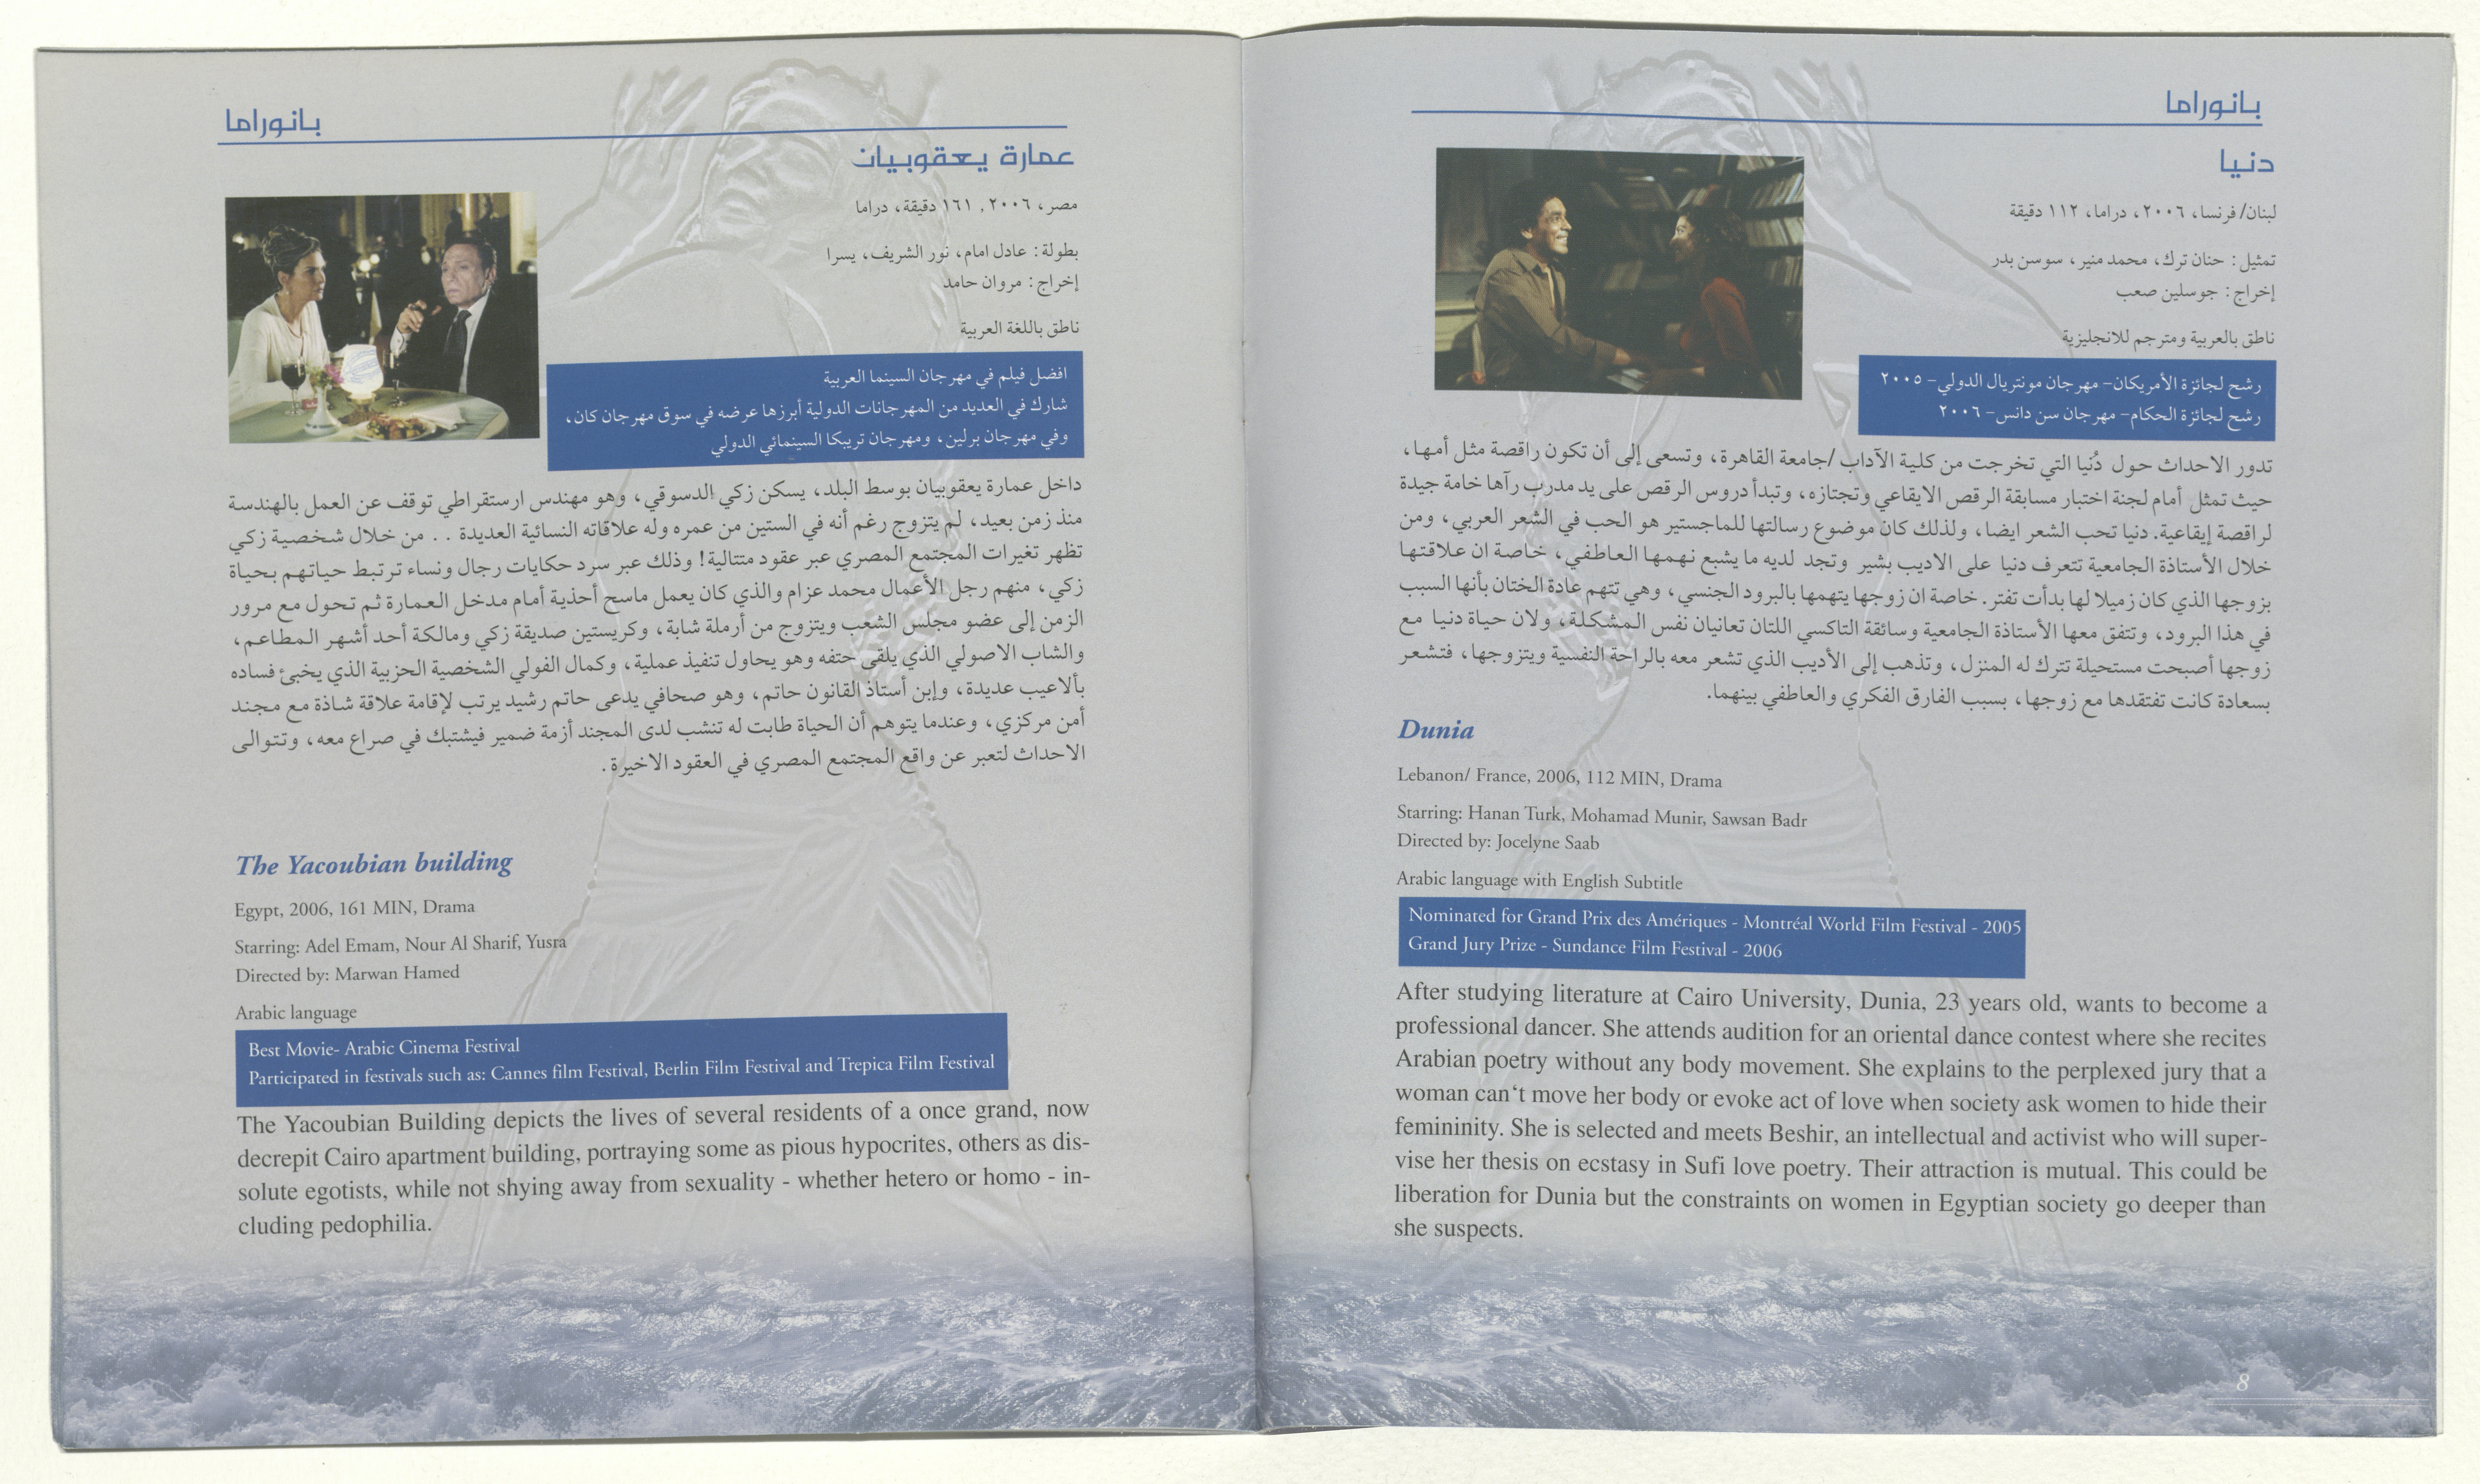 بانوراما
دنيا
لبنان/فرنسا، ٢٠٠٦، دراما، ١١٢ دقيقة
تمثيل: حنان ترك، محمد منير، سوسن بدر
إخراج: جوسلين صعب
ناطق بالعربية ومترجم للانجليزية
رشح لجائزة الأمريكان- مهرجان مونتريال الدولي- ٢٠٠٥
رشح لجائزة الحكام- مهرجان سن دانس- ٢٠٠٦
تدور الاحداث حول دُنيا التي تخرجت من كلية الآداب /جامعة القاهرة، وتسعى إلى أن تكون راقصة مثل أمها،
حيث تمثل أمام لجنة اختبار مسابقة الرقص الايقاعي وتجتازه، وتبدأ دروس الرقص على يد مدرب رآها خامة جيدة
لراقصة إيقاعية. دنيا تحب الشعر ايضا، ولذلك كان موضوع رسالتها للماجستير هو الحب في الشعر العربي، ومن
خلال الأستاذة الجامعية تتعرف دنيا على الاديب بشير وتجد لديه ما يشبع نهمها العاطفي، خاصة ان علاقتها
بزوجها الذي كان زميلا لها بدأت تفتر. خاصة ان زوجها يتهمها بالبرود الجنسي، وهي تتهم عادة الختان بأنها السبب
في هذا البرود، وتتفق معها الأستاذة الجامعية وسائقة التاكسي اللتان تعانيان نفس المشكلة، ولان حياة دنيا مع
زوجها أصبحت مستحيلة تترك له المنزل، وتذهب إلى الأديب الذي تشعر معه بالراحة النفسية ويتزوجها، فتشعر
بسعادة كانت تفتقدها مع زوجها، بسبب الفارق الفكري والعاطفي بينهما.
Dunia
Lebanon/ France, 2006, 112 MIN, Drama
Starring: Hanan Turk, Mohamad Munir, Sawsan Badr
Directed by: Jocelyne Saab
Arabic language with English Subtitle
Nominated for Grand Prix des Amériques - Montréal World Film Festival - 2005
Grand Jury Prize - Sundance Film Festival - 2006
After studying literature at Cairo University, Dunia, 23 years old, wants to become a
professional dancer. She attends audition for an oriental dance contest where she recites
Arabian poetry without any body movement. She explains to the perplexed jury that a
woman can‘t move her body or evoke act of love when society ask women to hide their
femininity. She is selected and meets Beshir, an intellectual and activist who will super-
vise her thesis on ecstasy in Sufi love poetry. Their attraction is mutual. This could be
liberation for Dunia but the constraints on women in Egyptian society go deeper than
she suspects.
8
بانوراما
عمارة يعقوبيان
مصر، ٢٠٠٦, ١٦١ دقيقة، دراما
بطولة: عادل امام، نور الشريف، يسرا
إخراج: مروان حامد
ناطق باللغة العربية
افضل فيلم في مهرجان السينما العربية
شارك في العديد من المهرجانات الدولية أبرزها عرضه في سوق مهرجان كان،
وفي مهرجان برلين، ومهرجان تريبكا السينمائي الدولي
داخل عمارة يعقوبيان بوسط البلد، يسكن زكي الدسوقي، وهو مهندس ارستقراطي توقف عن العمل بالهندسة
منذ زمن بعيد، لم يتزوج رغم أنه في الستين من عمره وله علاقاته النسائية العديدة . . من خلال شخصية زكي
تظهر تغيرات المجتمع المصري عبر عقود متتالية! وذلك عبر سرد حكايات رجال ونساء ترتبط حياتهم بحياة
زكي، منهم رجل الأعمال محمد عزام والذي كان يعمل ماسح أحذية أمام مدخل العمارة ثم تحول مع مرور
الزمن إلى عضو مجلس الشعب ويتزوج من أرملة شابة، وكريستين صديقة زكي ومالكة أحد أشهر المطاعم،
والشاب الاصولي الذي يلقى حتفه وهو يحاول تنفيذ عملية، وكمال الفولي الشخصية الحزبية الذي يخبئ فساده
بألاعيب عديدة، وإبن أستاذ القانون حاتم، وهو صحافي يدعى حاتم رشيد يرتب لإقامة علاقة شاذة مع مجند
أمن مركزي، وعندما يتوهم أن الحياة طابت له تنشب لدى المجند أزمة ضمير فيشتبك في صراع معه، وتتوالى
الاحداث لتعبر عن واقع المجتمع المصري في العقود الاخيرة.
The Yacoubian building
Egypt, 2006, 161 MIN, Drama
Starring: Adel Emam, Nour Al Sharif, Yusra
Directed by: Marwan Hamed
Arabic language
Best Movie- Arabic Cinema Festival
Participated in festivals such as: Cannes film Festival, Berlin Film Festival and Trepica Film Festival
The Yacoubian Building depicts the lives of several residents of a once grand, now
decrepit Cairo apartment building, portraying some as pious hypocrites, others as dis-
solute egotists, while not shying away from sexuality - whether hetero or homo - in-
cluding pedophilia.